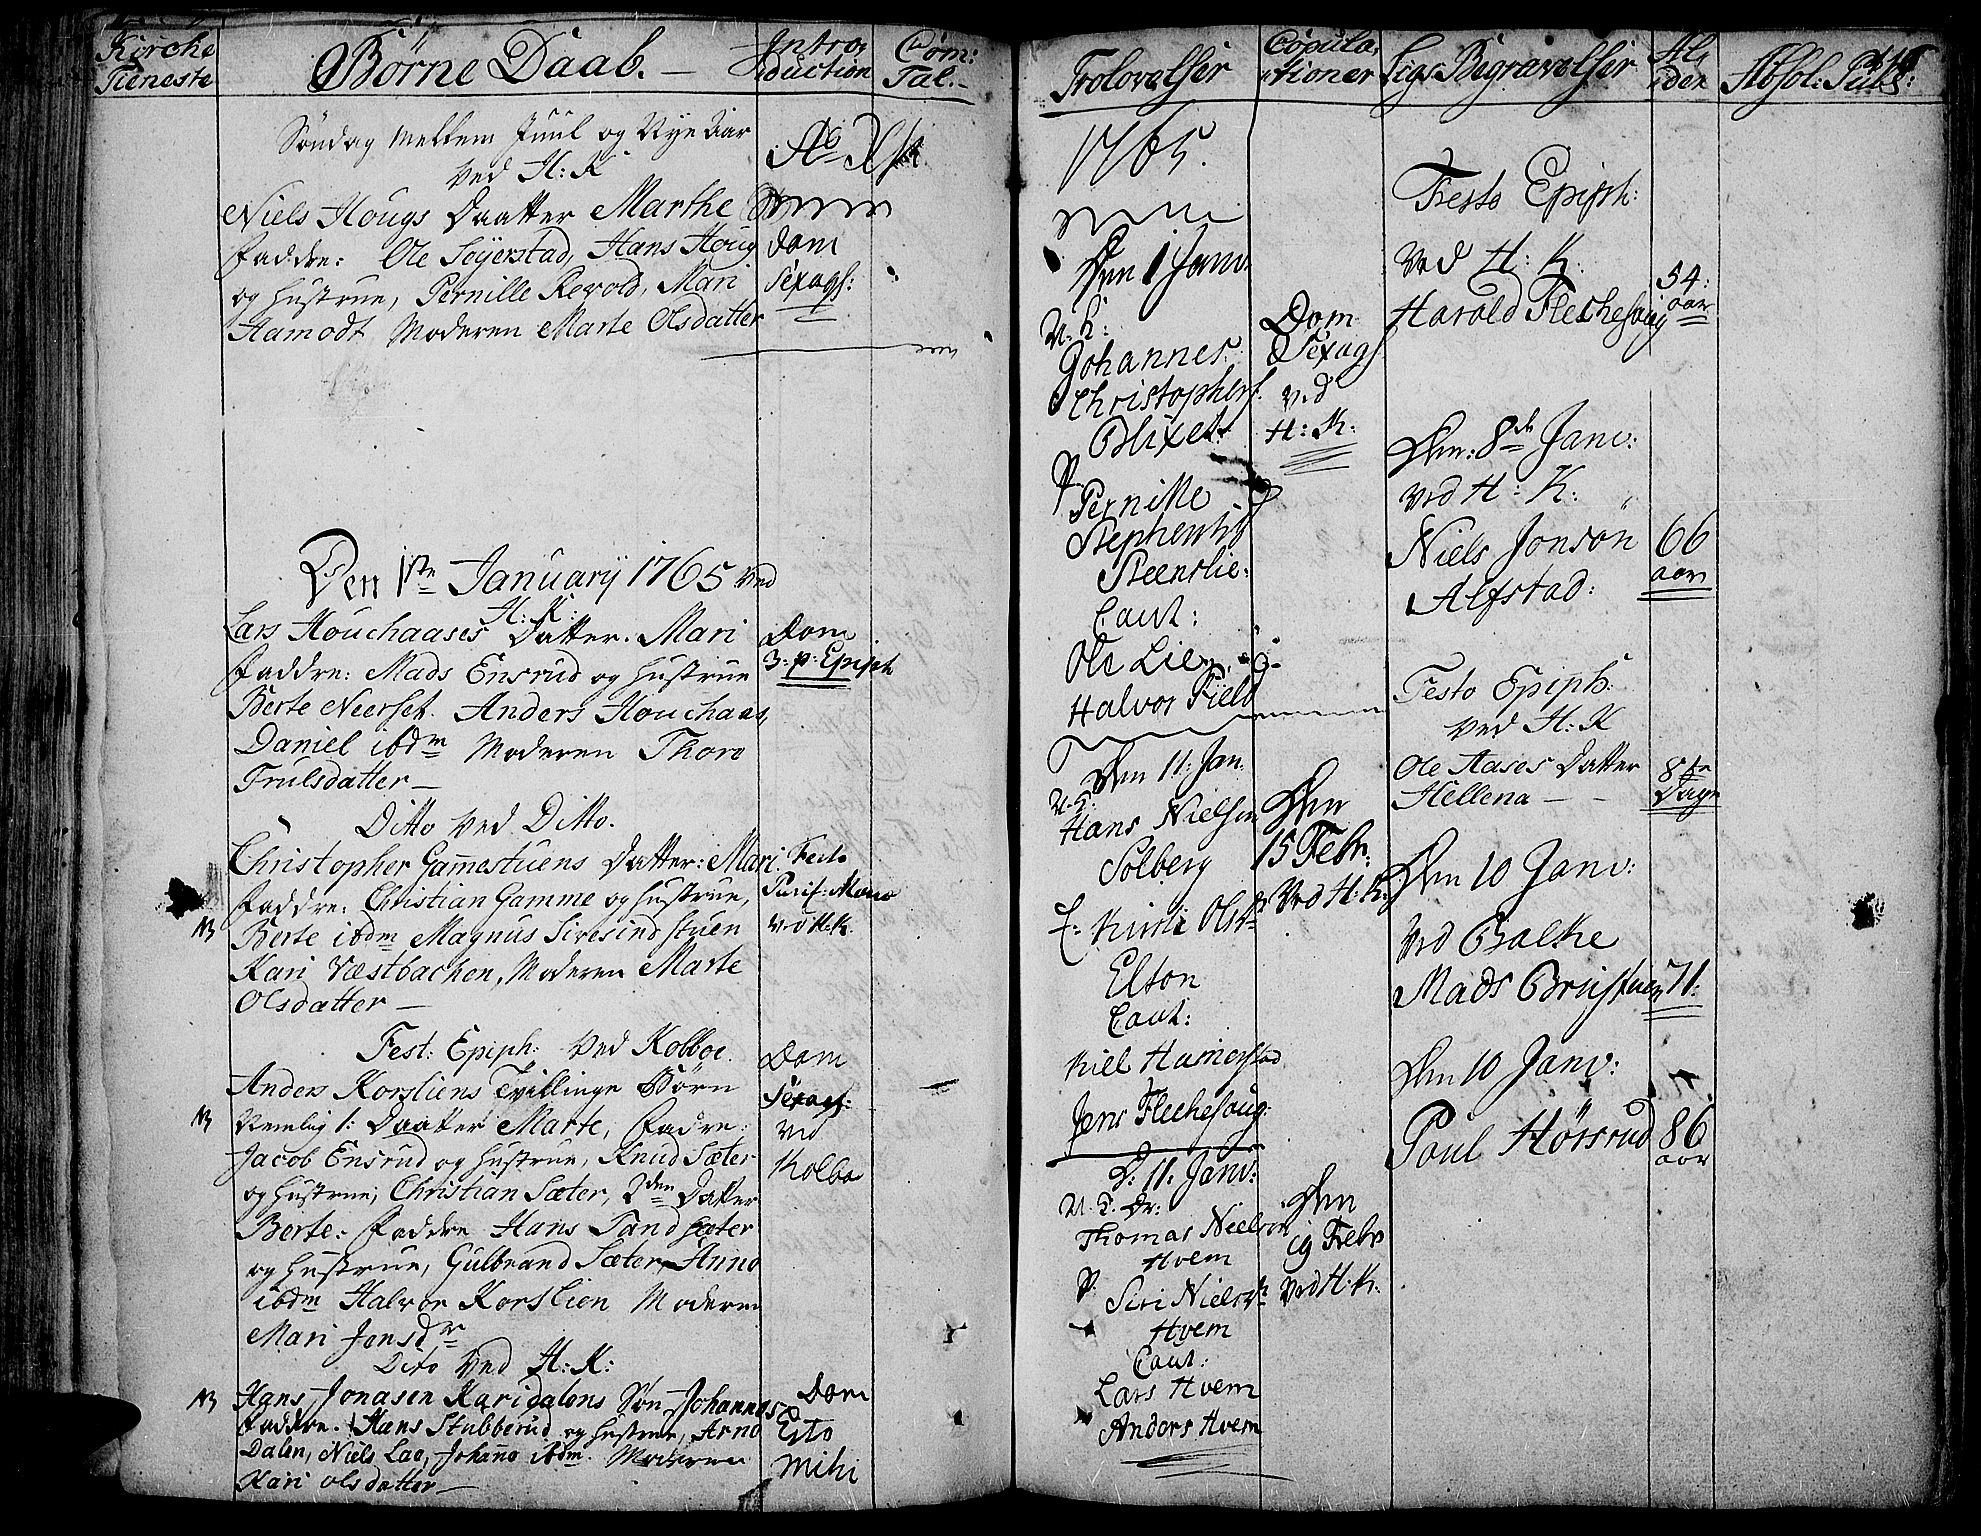 Kirche
Tieneste
Börne Daab. —
Intro,
duction
Com:
Tal.
Söndag mellem Juul og Nye Aar
ved H: K
Niels Hougs Daatter Marthe
Faddre: Ole Söyerstad, Hans Houg
og Hustrue, Pernille Revold, Mari
Hamodt Moderen Marte Olsdatter
Dom
Sexags:
Den 1ste January 1765 ved
H: K:
Lars Houchaases Datter. Mari
Faddre: Mads Ensrud og Hustrue
Berte Neerset. Anders Houchaas,
Daniel ibdm Moderen Thore
Trulsdatter —
Dom
3: p: Epiph
Ditto ved Ditto.
Christopher Gamestuens Datter: Mari
Faddre: Christian Gamme og Hustrue,
NB Berte ibdm Magnus Sivesindstuen
Kari Væstbachen, Moderen Marte
Olsdatter —
Festo
Purif: Mariæ
ved H: K.
Fest: Epiph: ved Kolboe.
Anders Korsliens Tvillinge Börn
NB Nemlig 1: Daatter Marte, Fadre:
Jacob Ensrud og Hustrue, Knud Sæter
og Hustrue, Christian Sæter, 2den Datter
Berte: Faddre Hans Sandsæter
og Hustrue, Gulbrand Sæter, Anne
ibdm Halvor Korslien Moderen
Mari Jensdr
Dom
Sexags:
ved
Kolbo
Dito ved H: K:
NB Hans Jonasen Karidalens Søn Johannes
Faddre. Hans Stubberud og Hustrue, Arne
Dalen, Niels Lae, Johane ibdm. Moderen
Kari olsdatter —
Dom
Esto
mihi
Trolovelser
Copula,
tioner
Ligs Begravelser
Al,
der
Absol: Publ:
1765.
Den 1 Janv:
U. K:
Johannes
Christophers:
Blixet.
P.
Pernille
Stephensd
Steenslie:
Caut:
Ole Lien,
Halvor Field
Dom
Sexags
ved
H: K:
Den 11: Jan.
U. K:
Hans Nielsen
Solberg
Kirsti Olsdr
Elton
Caut:
Kiell Hamerstad
Jens Flechesoug:
Den
15 Febr:
ved H: K:
D: 11: Janv:
U. K. Dr:
Thomas Nielsen
Hvem
P.
Siri Nielsdr
Hvem
Caut:
Lars Hvem
Anders Hvem
Den
19 Febr
ved H: K:
Festo Epiph:
ved H: K:
Harold Flechesoug
54:
aar
Den: 8de Janv:
ved H: K:
Niels Jonsön
Alfstad:
66
aar
Festo Epiph:
ved H: K
Ole Aases Datter
Hellena — —
8te
Dage
Den 10 Janv:
ved Balke
Mads Bruistuen
71:
Den 10 Janv:
Poul Hörsrud
86
aar